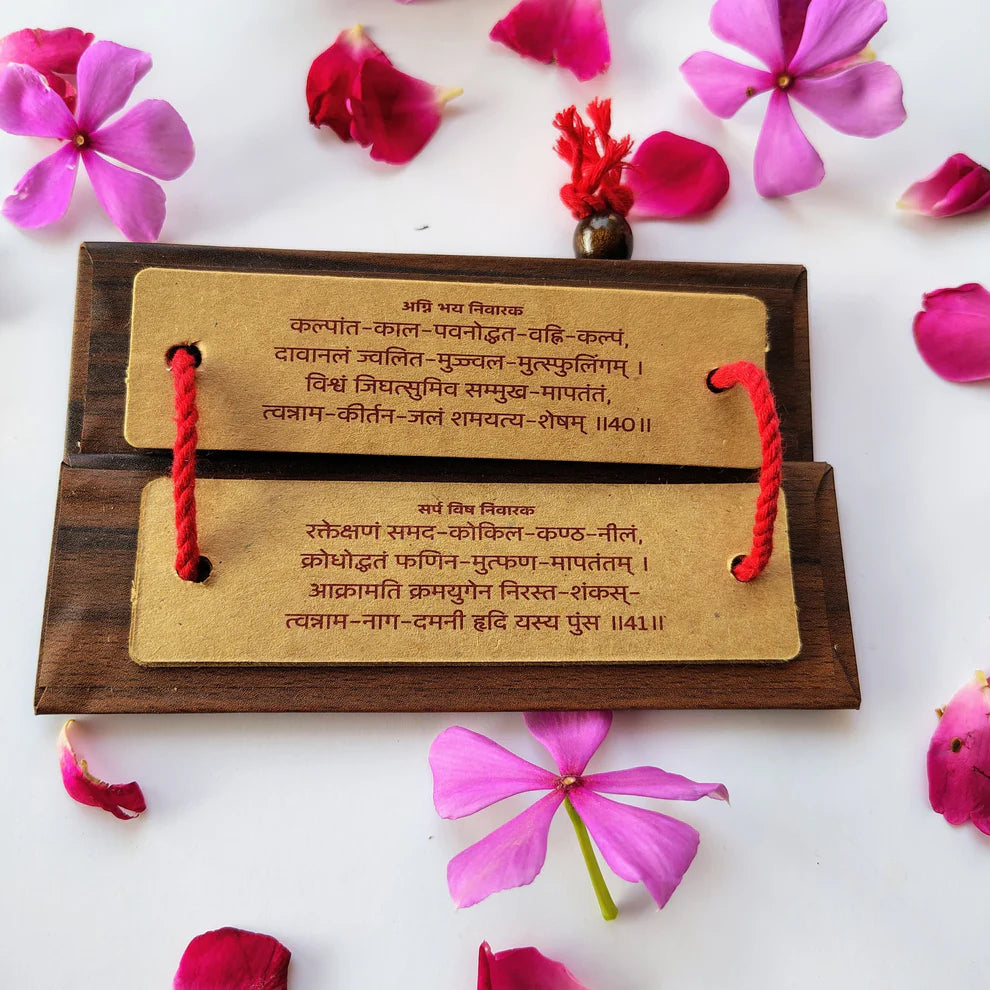 अग्नि भय निवारक
कल्पांत-काल-पवनोद्धत-वह्नि-कल्पं,
दावानलं ज्वलित-मुज्ज्वल-मुत्स्फुलिंगम् ।
विश्वं जिघत्सुमिव सम्मुख-मापतंतं,
त्वन्नाम-कीर्तन-जलं शमयत्य-शेषम् ॥40॥
सर्प विष निवारक
रक्तेक्षणं समद-कोकिल-कण्ठ-नीलं,
क्रोधोद्धतं फणिन-मुत्फण-मापतंतम् ।
आक्रामति क्रमयुगेन निरस्त-शंकस्-
त्वन्नाम-नाग-दमनी हृदि यस्य पुंस ॥41॥